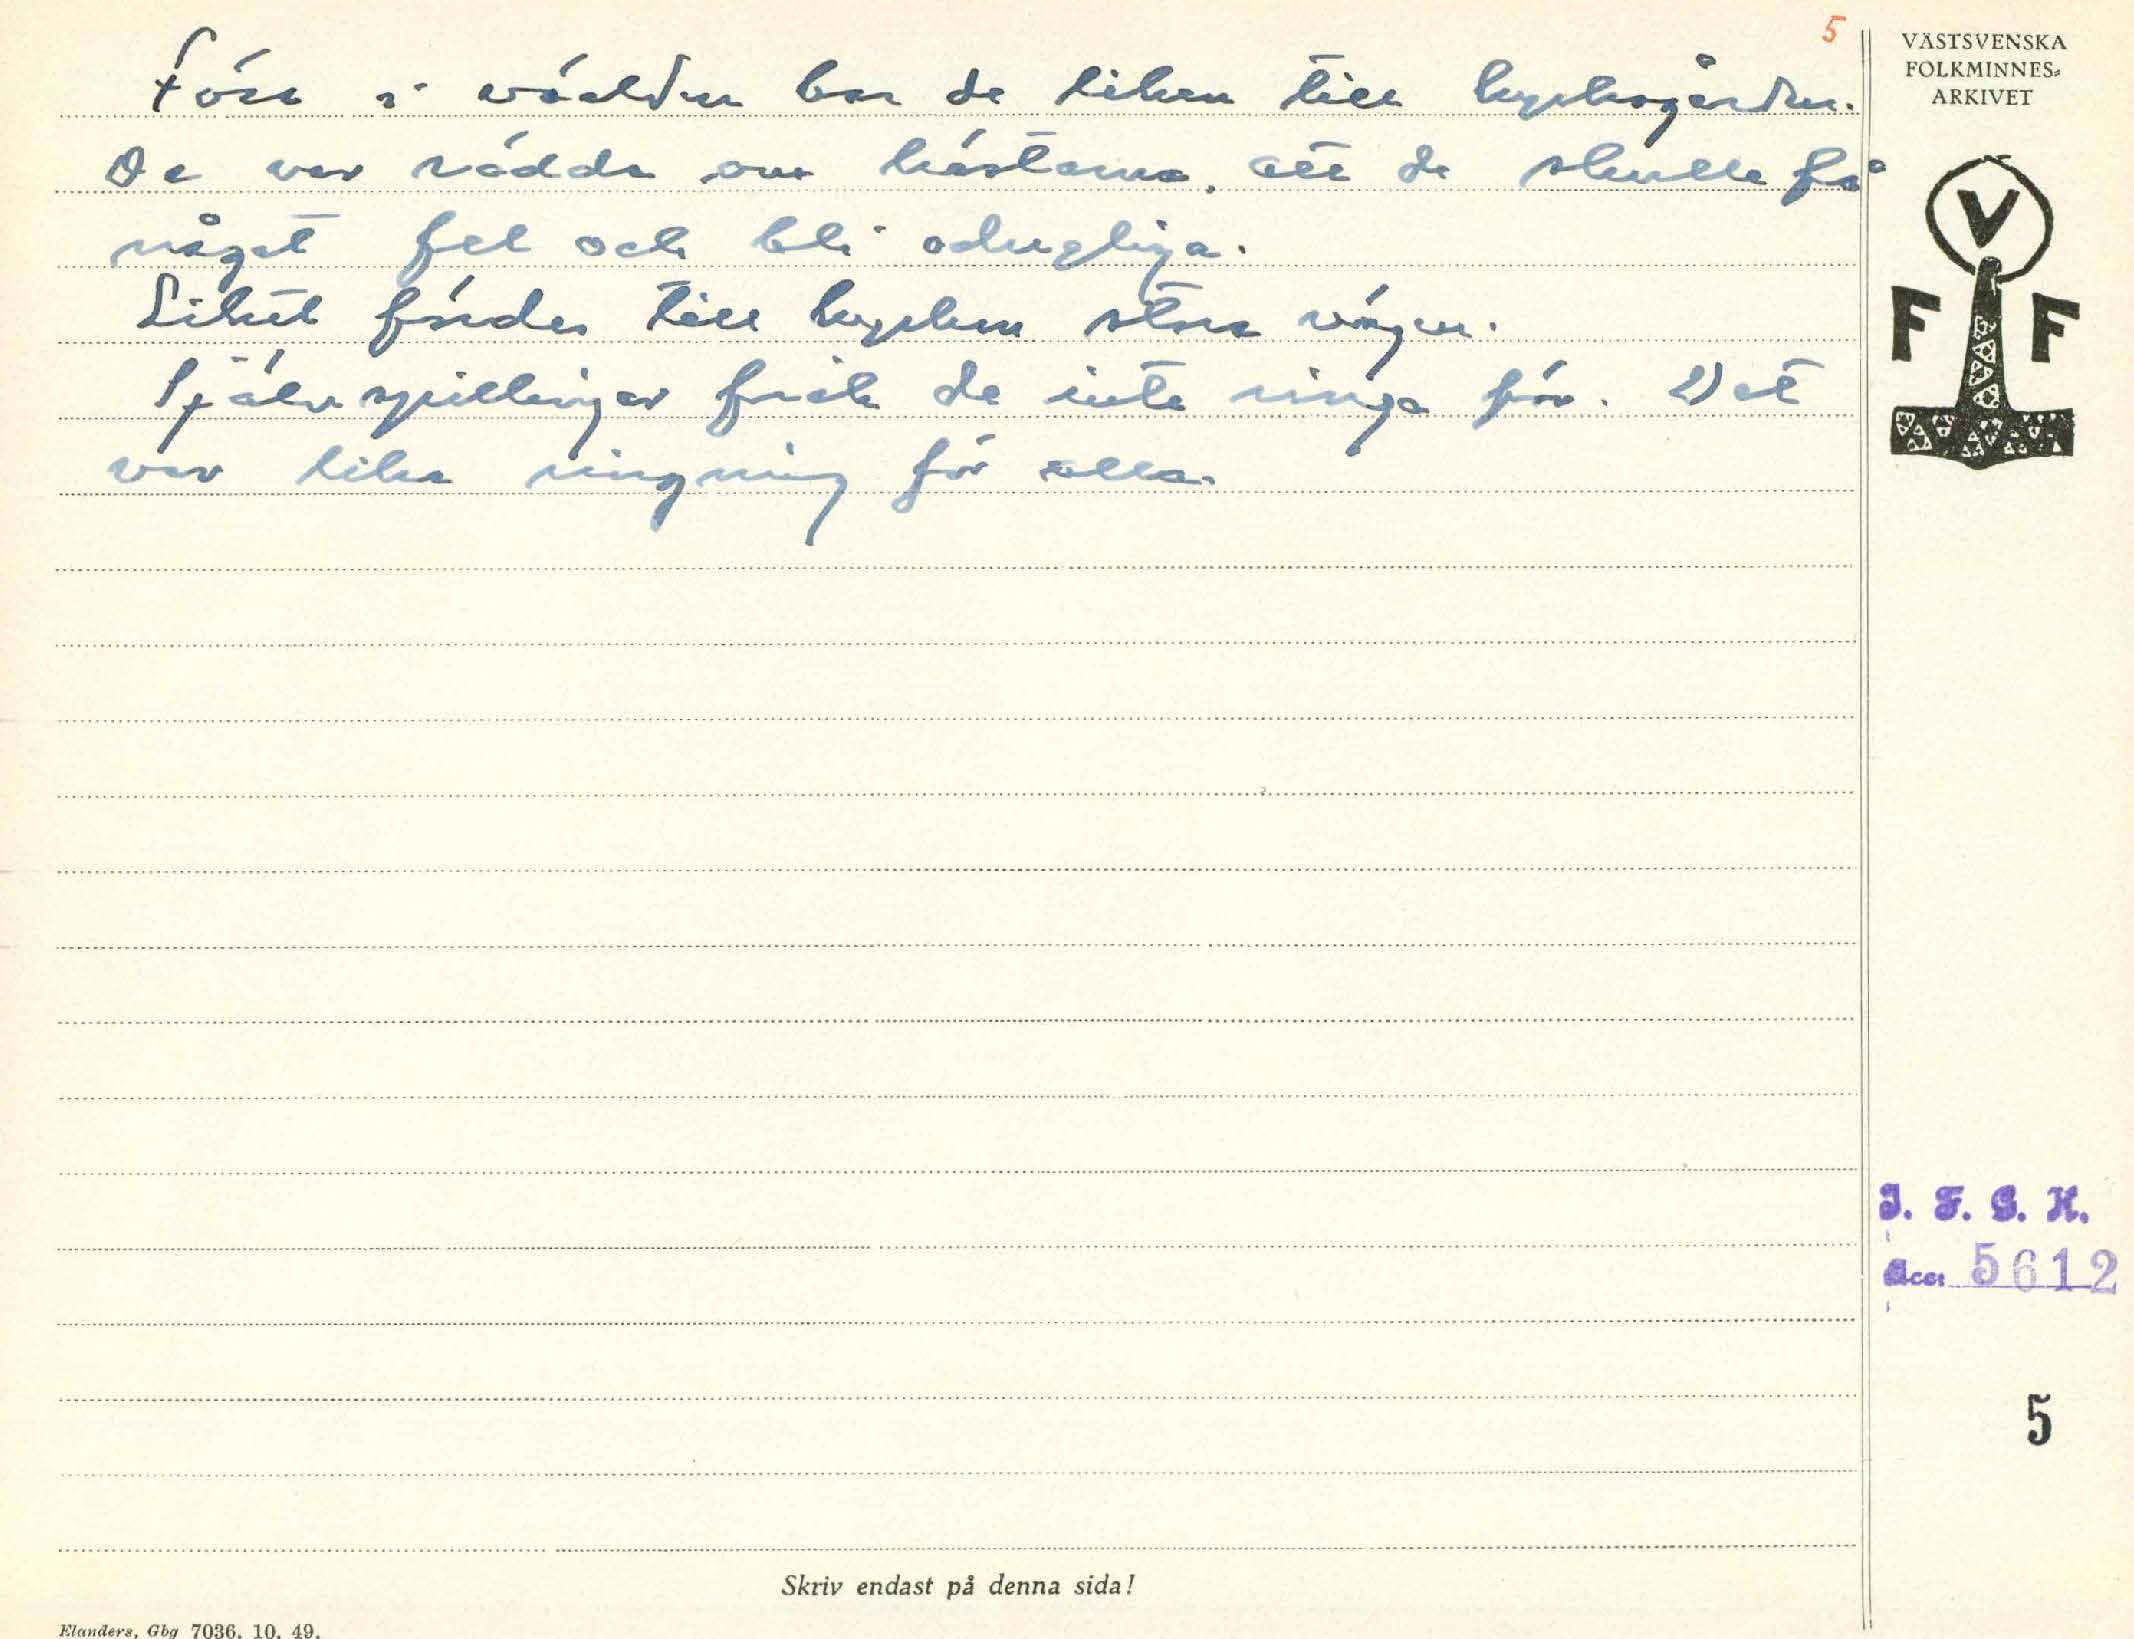 5
Förr i världen bar de liken till kyrkogården.
De var rädda om hästarna, att de skulle få
något fel och bli odugliga.
Liket fördes till kyrkan stora vägen.
Självspillingar fick de inte ringa för. Det
var lika ringning för alla.
VÄSTSVENSKA
FOLKMINNES-
ARKIVET
V
F F
I. F. G. H.
Acc: 5612
5
Skriv endast på denna sida!
Elanders, Gbg 7036. 10. 49.